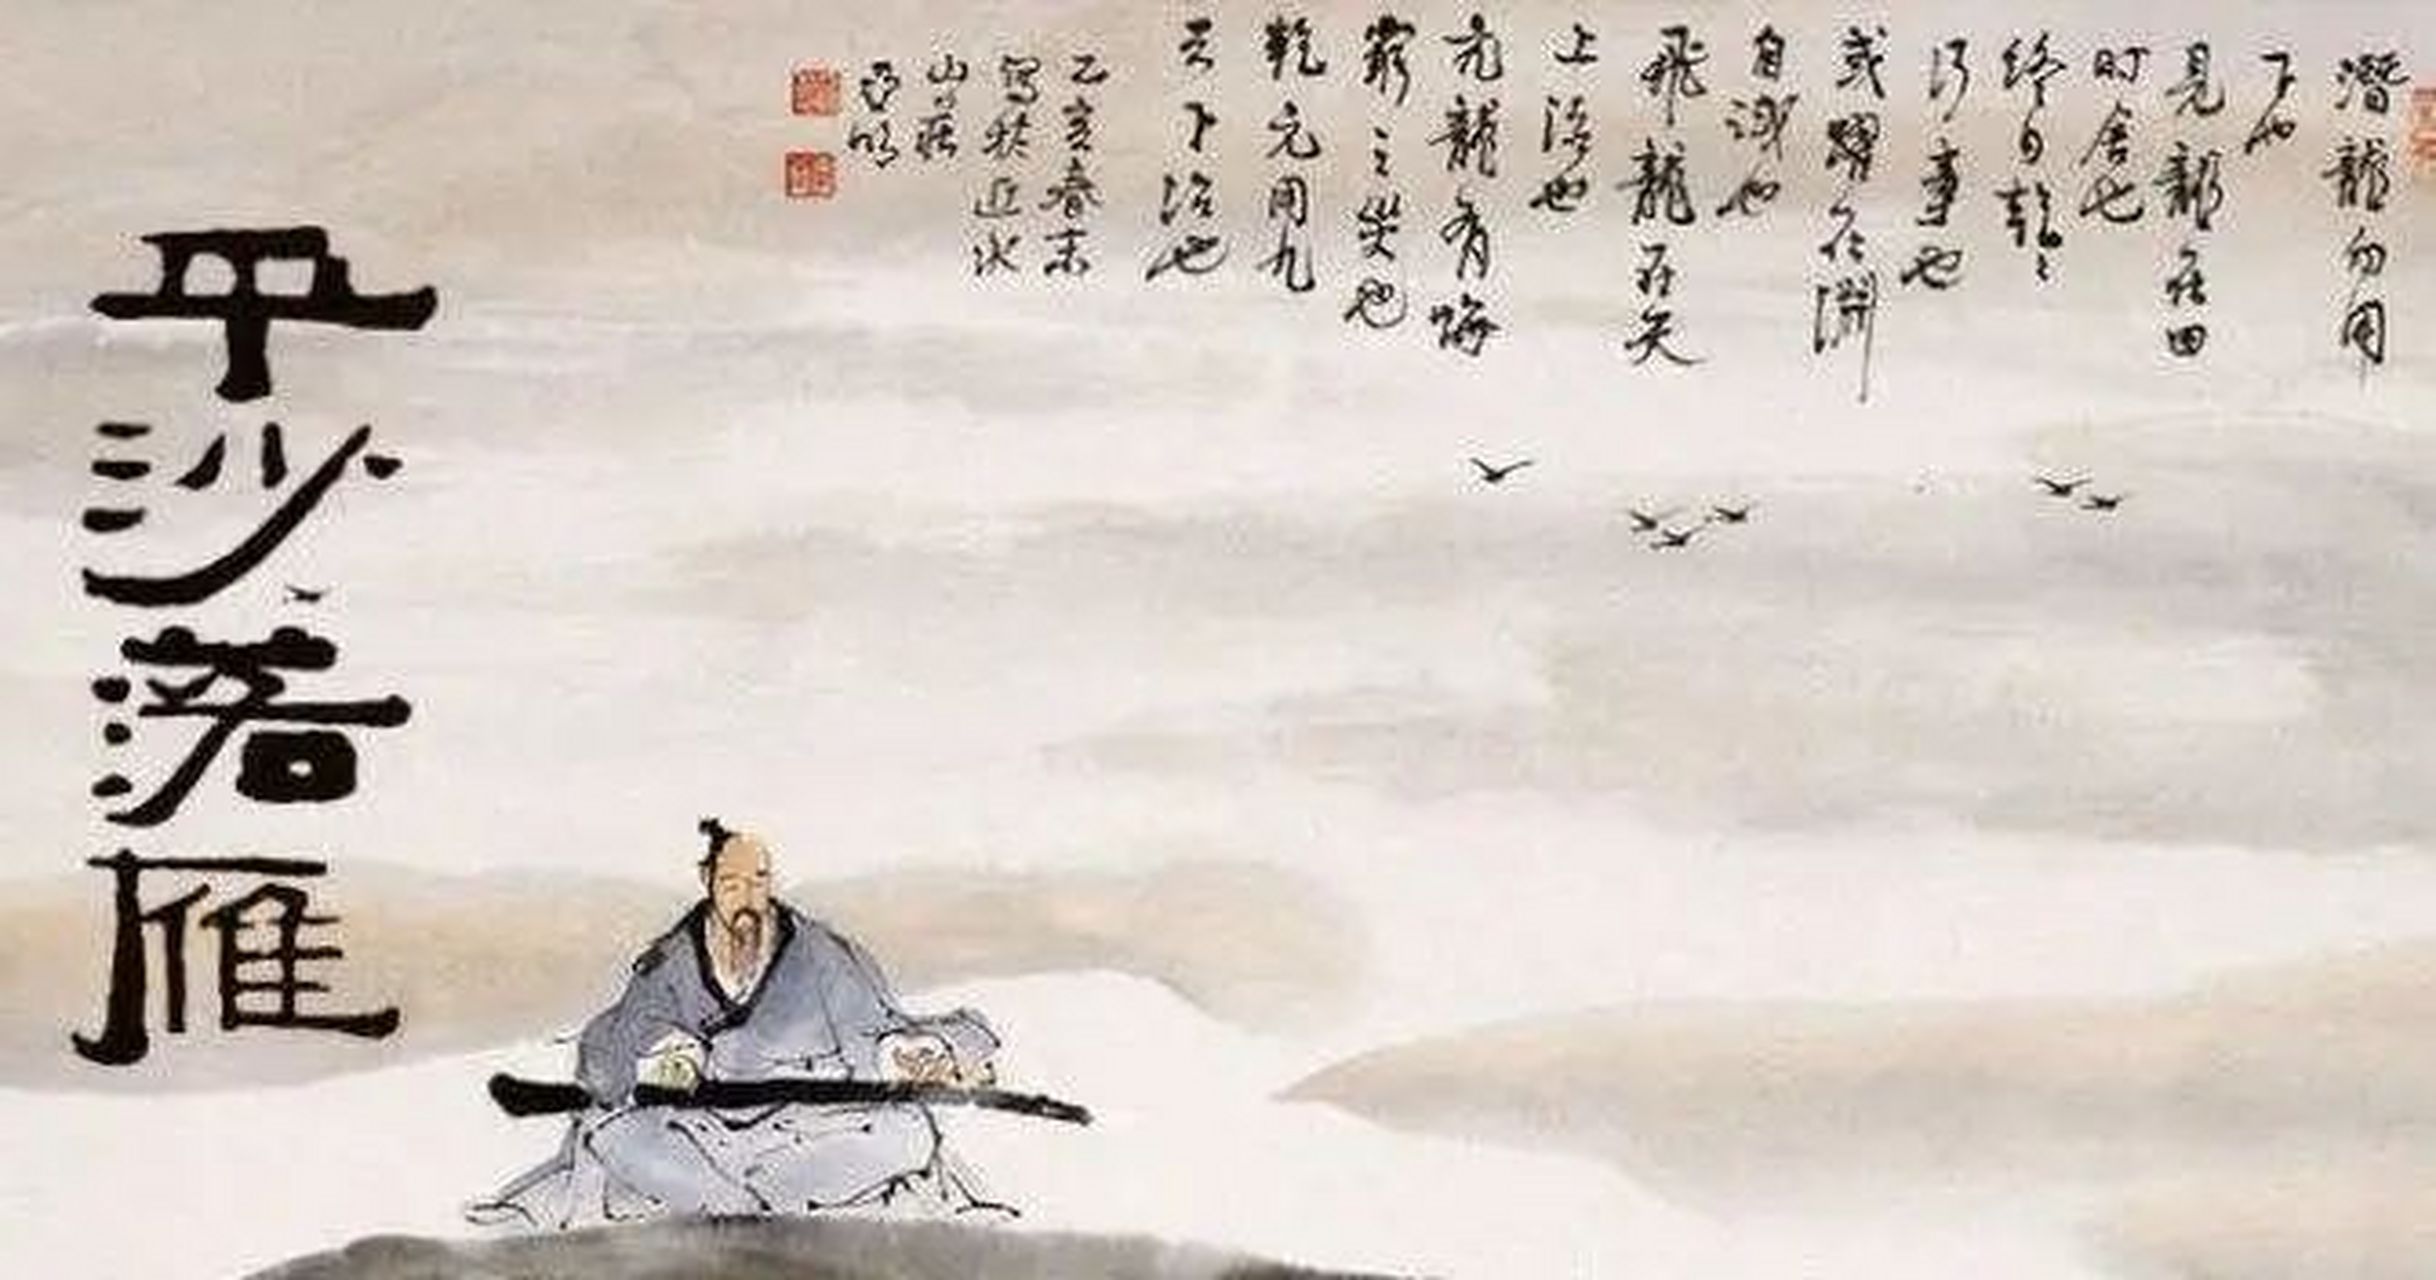 潛龍勿用
下也
見龍在田
时舍也
終日乾〻
行事也
或躍在淵
自試也
飛龍在天
上治也
亢龍有悔
窮之災也
乾元用九
天下治也
乙亥春末
寫於近水
山莊
亞明
平沙落雁